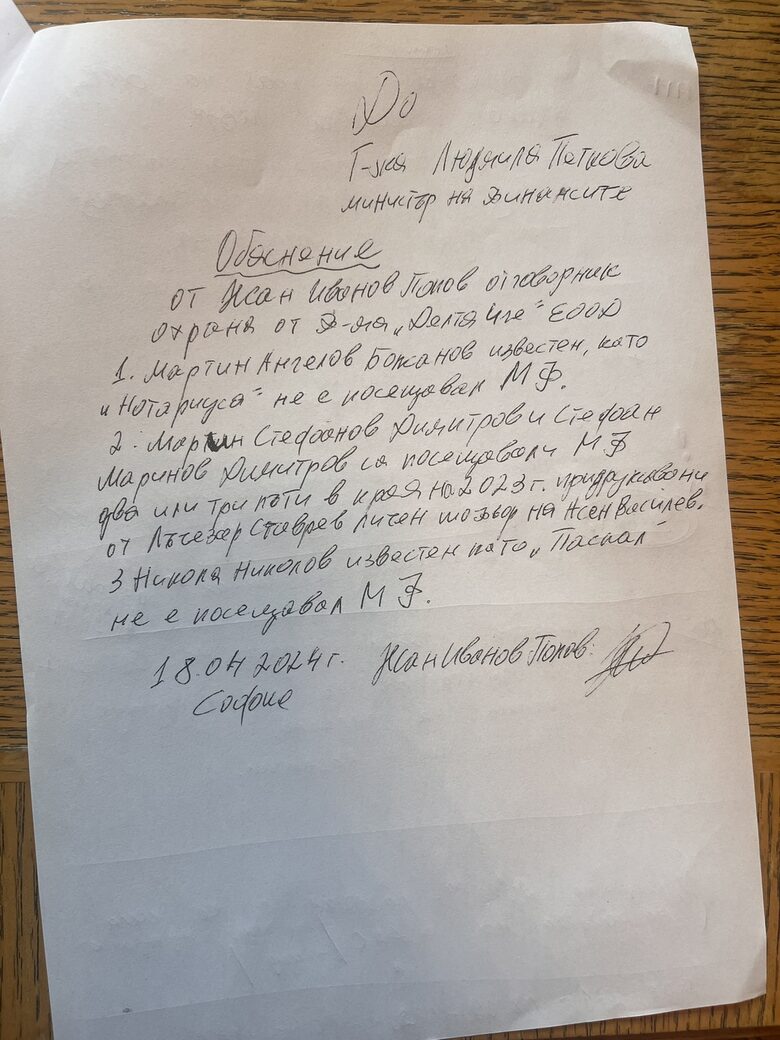 До
Г-жа Людмила Петкова
министър на финансите
Обяснение
от Жан Иванов Попов отговорник
охрана от Ф-ма „Делта Чге" ЕООД
1. Мартин Ангелов Божанов известен, като
„Нотариуса" не е посещавал МФ.
2. Мартин Стефанов Димитров и Стефан
Маринов Димитров са посещавали МФ
два или три пъти в края на 2023 г. придружавани
от Лъчезар Ставрев личен шофьор на Асен Василев.
3 Никола Николов известен като „Паскал"
не е посещавал МФ.
18.04 2024 г. Жан Иванов Попов:
София